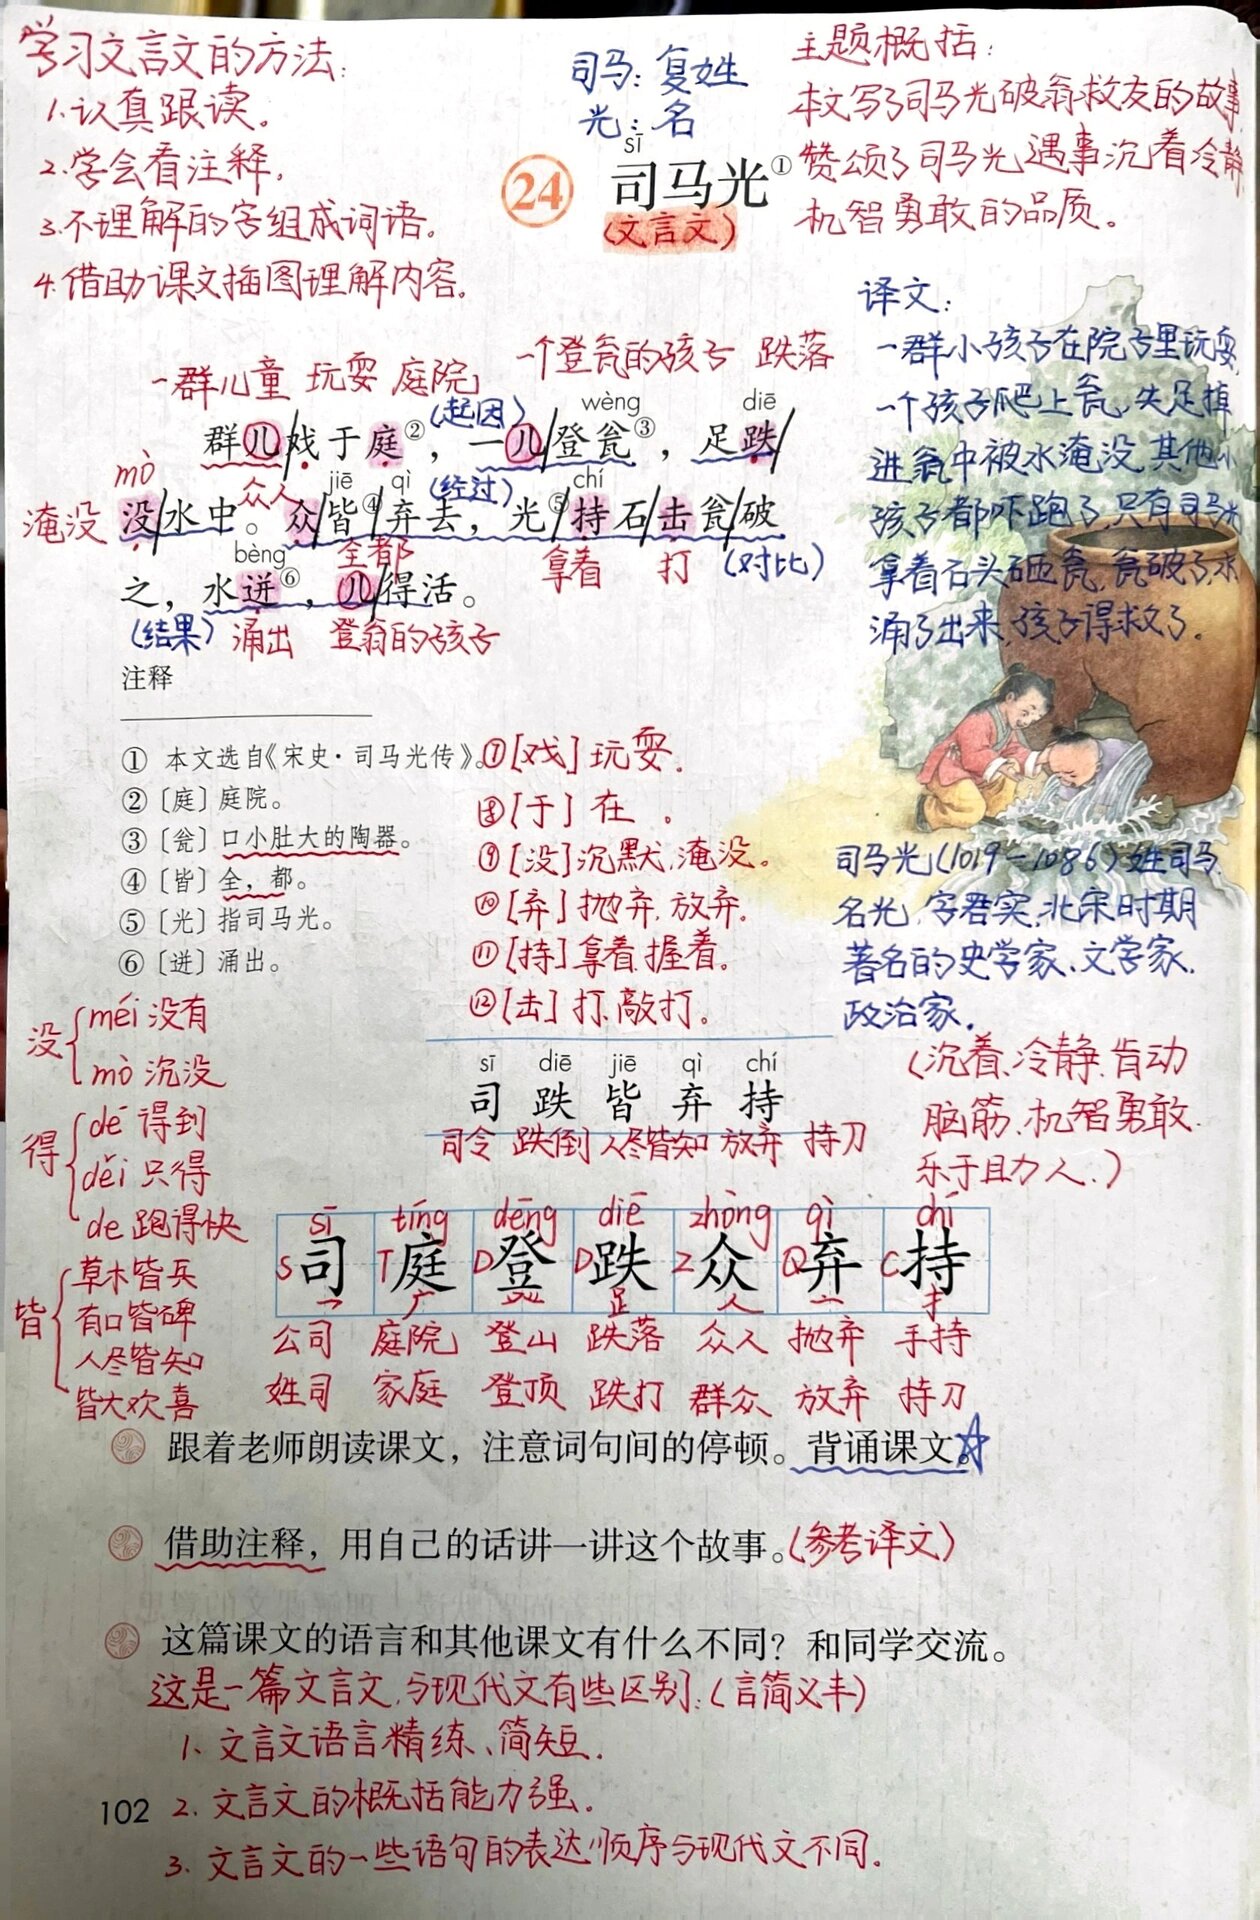 学习文言文的方法:
1.认真跟读。
2.学会看注释.
3.不理解的字组成词语。
4.借助课文插图理解内容。
司马:复姓
光:名
sī
24 司马光①
(文言文)
主题概括:
本文写了司马光破瓮救友的故事,
赞颂了司马光遇事沉着冷静
机智勇敢的品质。
译文:
一群小孩子在院子里玩耍,
一个孩子爬上瓮,失足掉
进瓮中被水淹没,其他小
孩子都吓跑了,只有司马光
拿着石头砸瓮,瓮破了,水
涌了出来,孩子得救了。
一群儿童 玩耍 庭院 一个登瓮的孩子 跌落
(起因) wèng diē
群儿/戏于庭②,一儿/登瓮③,足跌/
mò 众人 jiē qì (经过) chí
淹没 没/水中。众/皆④/弃去,光⑤/持石/击瓮/破
bèng 全都 拿着 打 (对比)
之,水迸⑥,儿/得活。
(结果) 涌出 登瓮的孩子
注释
① 本文选自《宋史·司马光传》。
② 〔庭〕庭院。
③ 〔瓮〕口小肚大的陶器。
④ 〔皆〕全,都。
⑤ 〔光〕指司马光。
⑥ 〔迸〕涌出。
⑦[戏]玩耍.
⑧[于]在 。
⑨[没]沉默,淹没。
⑩[弃]抛弃.放弃.
⑪[持]拿着.握着。
⑫[击]打.敲打。
司马光(1019-1086)姓司马
名光,字君实,北宋时期
著名的史学家、文学家、
政治家.
(沉着、冷静、肯动
脑筋、机智勇敢.
乐于助人.)
没 méi 没有
mò 沉没
得 dé 得到
děi 只得
de 跑得快
皆 草木皆兵
有口皆碑
人尽皆知
皆大欢喜
sī diē jiē qì chí
司 跌 皆 弃 持
司令 跌倒 人尽皆知 放弃 持刀
sī tíng dēng diē zhòng qì chí
S司 T庭 D登 D跌 Z众 Q弃 C持
𠃌 广 癶 𧾷 人 亠 扌
公司 庭院 登山 跌落 众人 抛弃 手持
姓司 家庭 登顶 跌打 群众 放弃 持刀
跟着老师朗读课文,注意词句间的停顿。背诵课文。☆
借助注释,用自己的话讲一讲这个故事。(参考译文)
这篇课文的语言和其他课文有什么不同?和同学交流。
这是一篇文言文,与现代文有些区别:(言简义丰)
1、文言文语言精练、简短.
2.文言文的概括能力强.
3.文言文的一些语句的表达顺序与现代文不同.
102